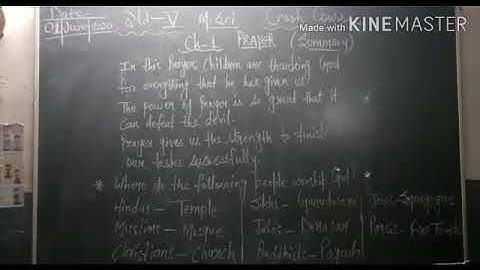 Made with KINEMASTER
Date-
Std-V M.Sci Crash Course
Ch-1 PRAYER (Summary)
In this Prayer children are thanking God
for everything that he has given us.
The power of Prayer is so great that it
can defeat the devil.
Prayer gives us the strength to finish
our tasks successfully.
* Where do the following people worship God?
Hindus - Temple Sikhs - Gurudwara Jews - Synagogue
Muslims - Mosque Parsis - Fire Temple
Christians - Church Buddhists - Pagoda